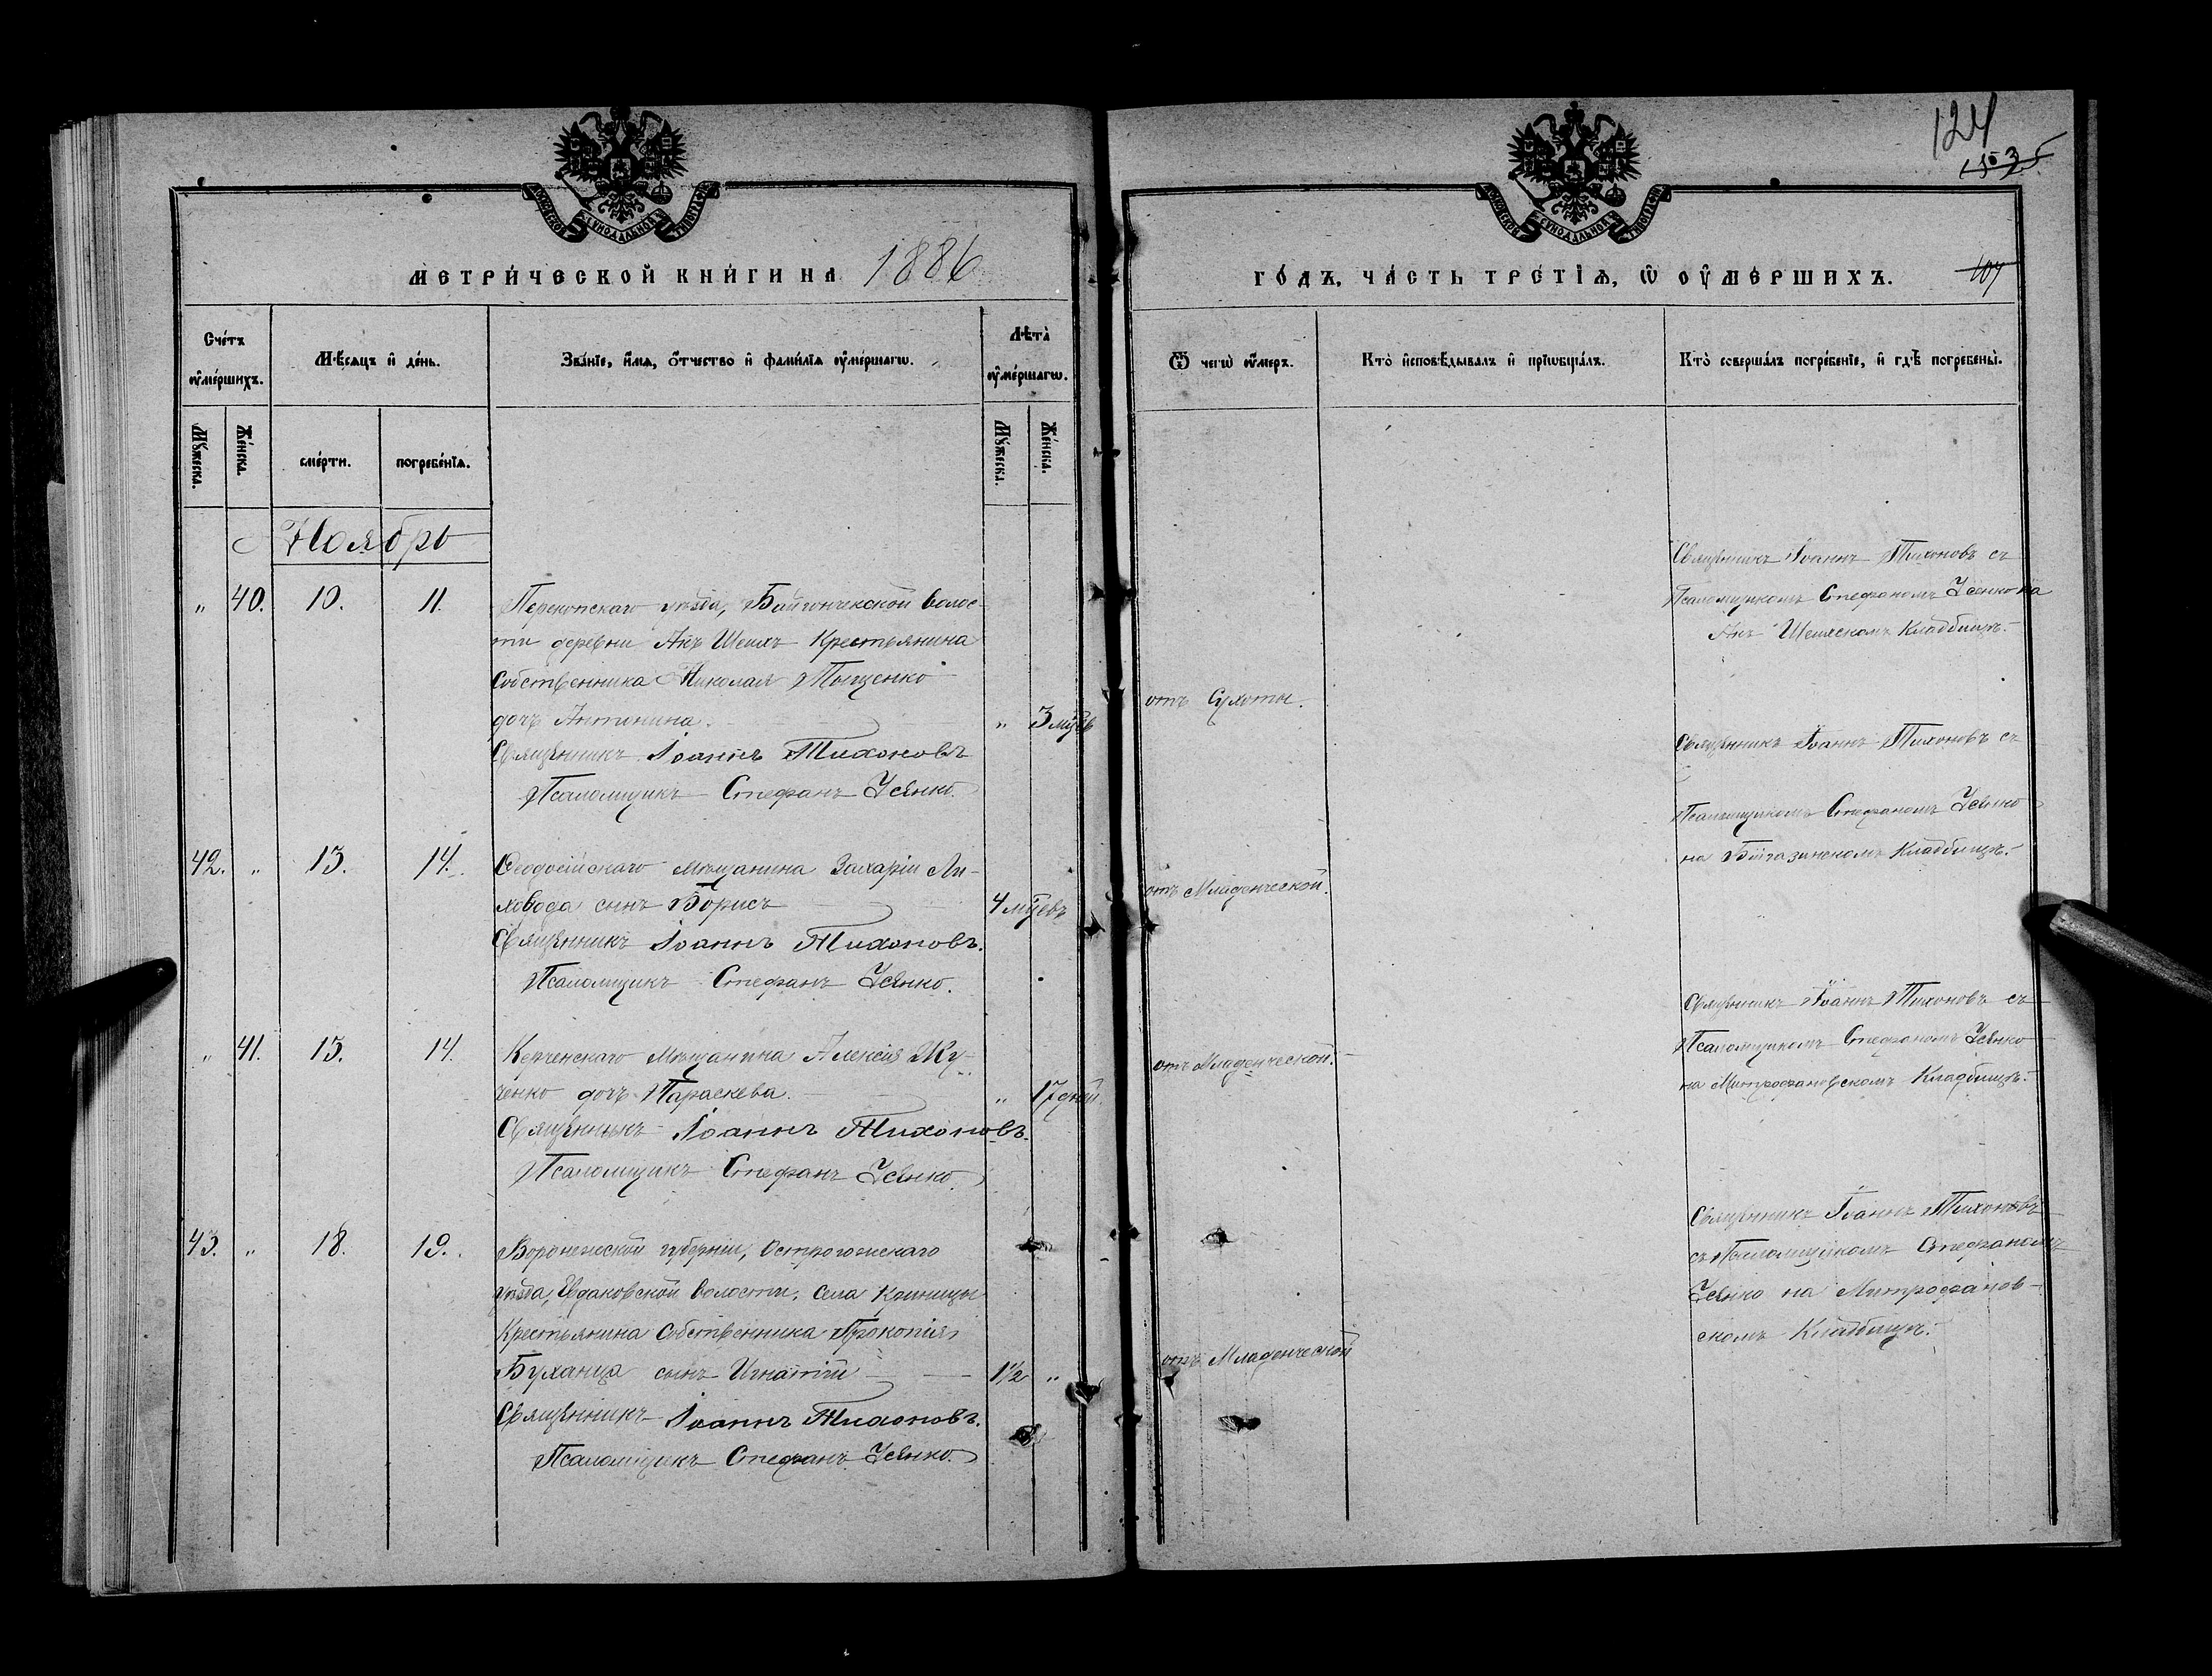 124
МЕТРИ́ЧЕСКОЙ КНИ́ГИ НА 1886
ГО́ДЪ, ЧА́СТЬ ТРЕ́ТІѦ, Ѡ ОУ҆МЕ́РШИХЪ.
104
Сче́тъ оу҆ме́ршихъ.
Мѣ́сяцъ и҆ де́нь.
Зва́нїе, и҆́мѧ, ѻ҆́тчество и҆ фами́лїѧ оу҆ме́ршагѡ.
Лѣ́та оу҆ме́ршагѡ.
Ѿ чегѡ̀ оу҆́меръ.
Кто̀ и҆сповѣ́дывалъ и҆ прїѡбща́лъ.
Кто̀ соверша́лъ погребе́нїе, и҆ гдѣ̀ погребены̀.
Му́жеска.
Же́нска.
сме́рти.
погребе́нїѧ.
Му́жеска.
Же́нска.
Ноябрь
" 40. 10. 11.
Перекопскаго уѣзда, Байгончекской волос-
ти деревни Акъ Шеихъ Крестьянина
Собственника Николая Тыщенко
дочь Антонина. " 3 мцѣв
Священникъ Іоаннъ Тихоновъ
Псаломщикъ Стефанъ Усенко.
отъ Сухоты.
Священникъ Іоаннъ Тихоновъ съ
Псаломщикомъ Стефаномъ Усенко на
Акъ Шеихскомъ Кладбищѣ.
42. " 13. 14.
Ѳеодосійскаго мѣщанина Захарія Ли-
ховода сынъ Борисъ 4 мцевъ
Священникъ Іоаннъ Тихоновъ.
Псаломщикъ Стефанъ Усенко.
отъ Младенческой.
Священникъ Іоаннъ Тихоновъ съ
Псаломщикомъ Стефаномъ Усенко
на Кладбищѣ.
" 41. 13. 14.
Керченскаго Мѣщанина Алексія Жу-
ченко дочь Параскева. " 17 дней.
Священникъ Іоаннъ Тихоновъ.
Псаломщикъ Стефанъ Усенко.
отъ Младенческой.
Священникъ Іоаннъ Тихоновъ съ
Псаломщикомъ Стефаномъ Усенко
на Митрофановскомъ Кладбищѣ.
43. " 18. 19.
Воронежской губерніи, Острогожскаго
уѣзда, Евдаковской Волости, Села Криницы
Крестьянина Собственника Прокопія
Буханца сынъ Игнатій 1½ "
Священникъ Іоаннъ Тихоновъ.
Псаломщикъ Стефанъ Усенко.
отъ Младенческой
Священникъ Іоаннъ Тихоновъ
съ Псаломщикомъ Стефаномъ
Усенко на Митрофанов-
скомъ Кладбищѣ.